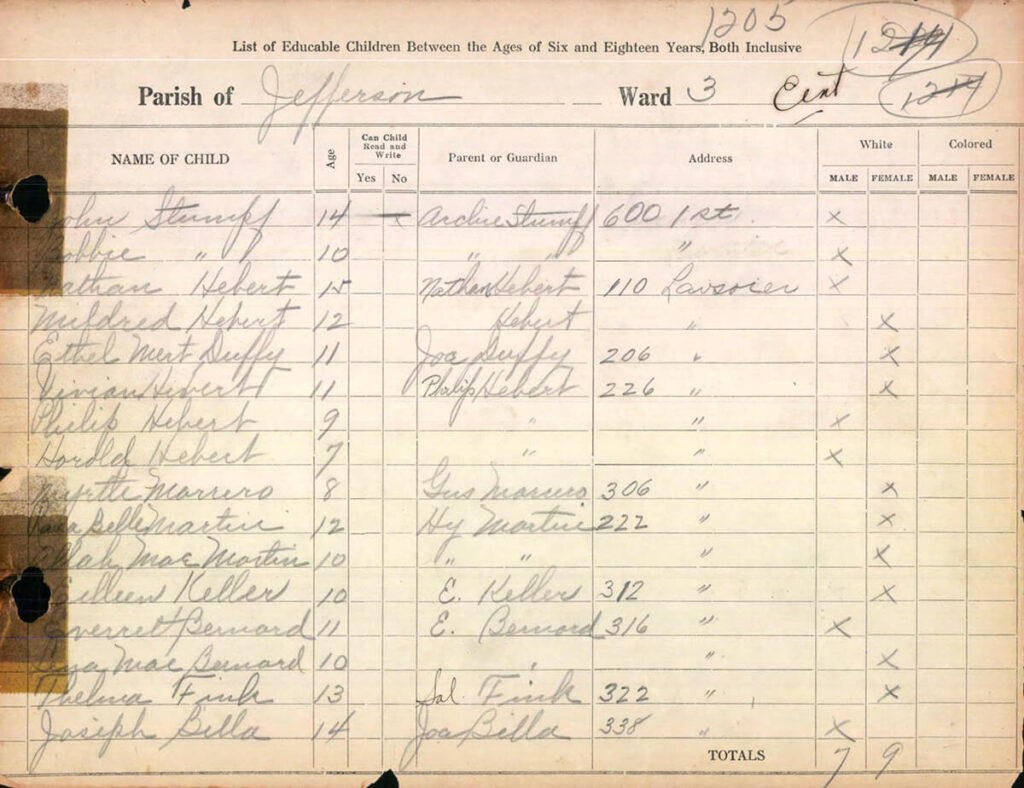 1205
List of Educable Children Between the Ages of Six and Eighteen Years, Both Inclusive 1214
Parish of Jefferson Ward 3 Cent 1214
NAME OF CHILD Age Can Child Read and Write Yes No Parent or Guardian Address White MALE FEMALE Colored MALE FEMALE
John Stumpf 14 — x Archie Stumpf 600 1st x
Bobbie " 10 " " " x
Nathan Hebert 15 Nathan Hebert 110 x
Mildred Hebert 12 Hebert " x
Ethel Mert Duffy 11 Joe Duffy 206 " x
Vivian Hebert 11 Philip Hebert 226 " x
Philip Hebert 9 " " x
Harold Hebert 7 " " x
Myrtle Marrero 8 Gus Marrero 306 " x
Belle Martin 12 Hy Martin 222 " x
Mae Martin 10 " " " x
Eilleen Keller 10 E. Keller 312 " x
Everret Bernard 11 E. Bernard 316 " x
Mae Bernard 10 " " x
Thelma Fink 13 Sal Fink 322 " x
Joseph Billa 14 Joe Billa 338 " x
TOTALS 7 9